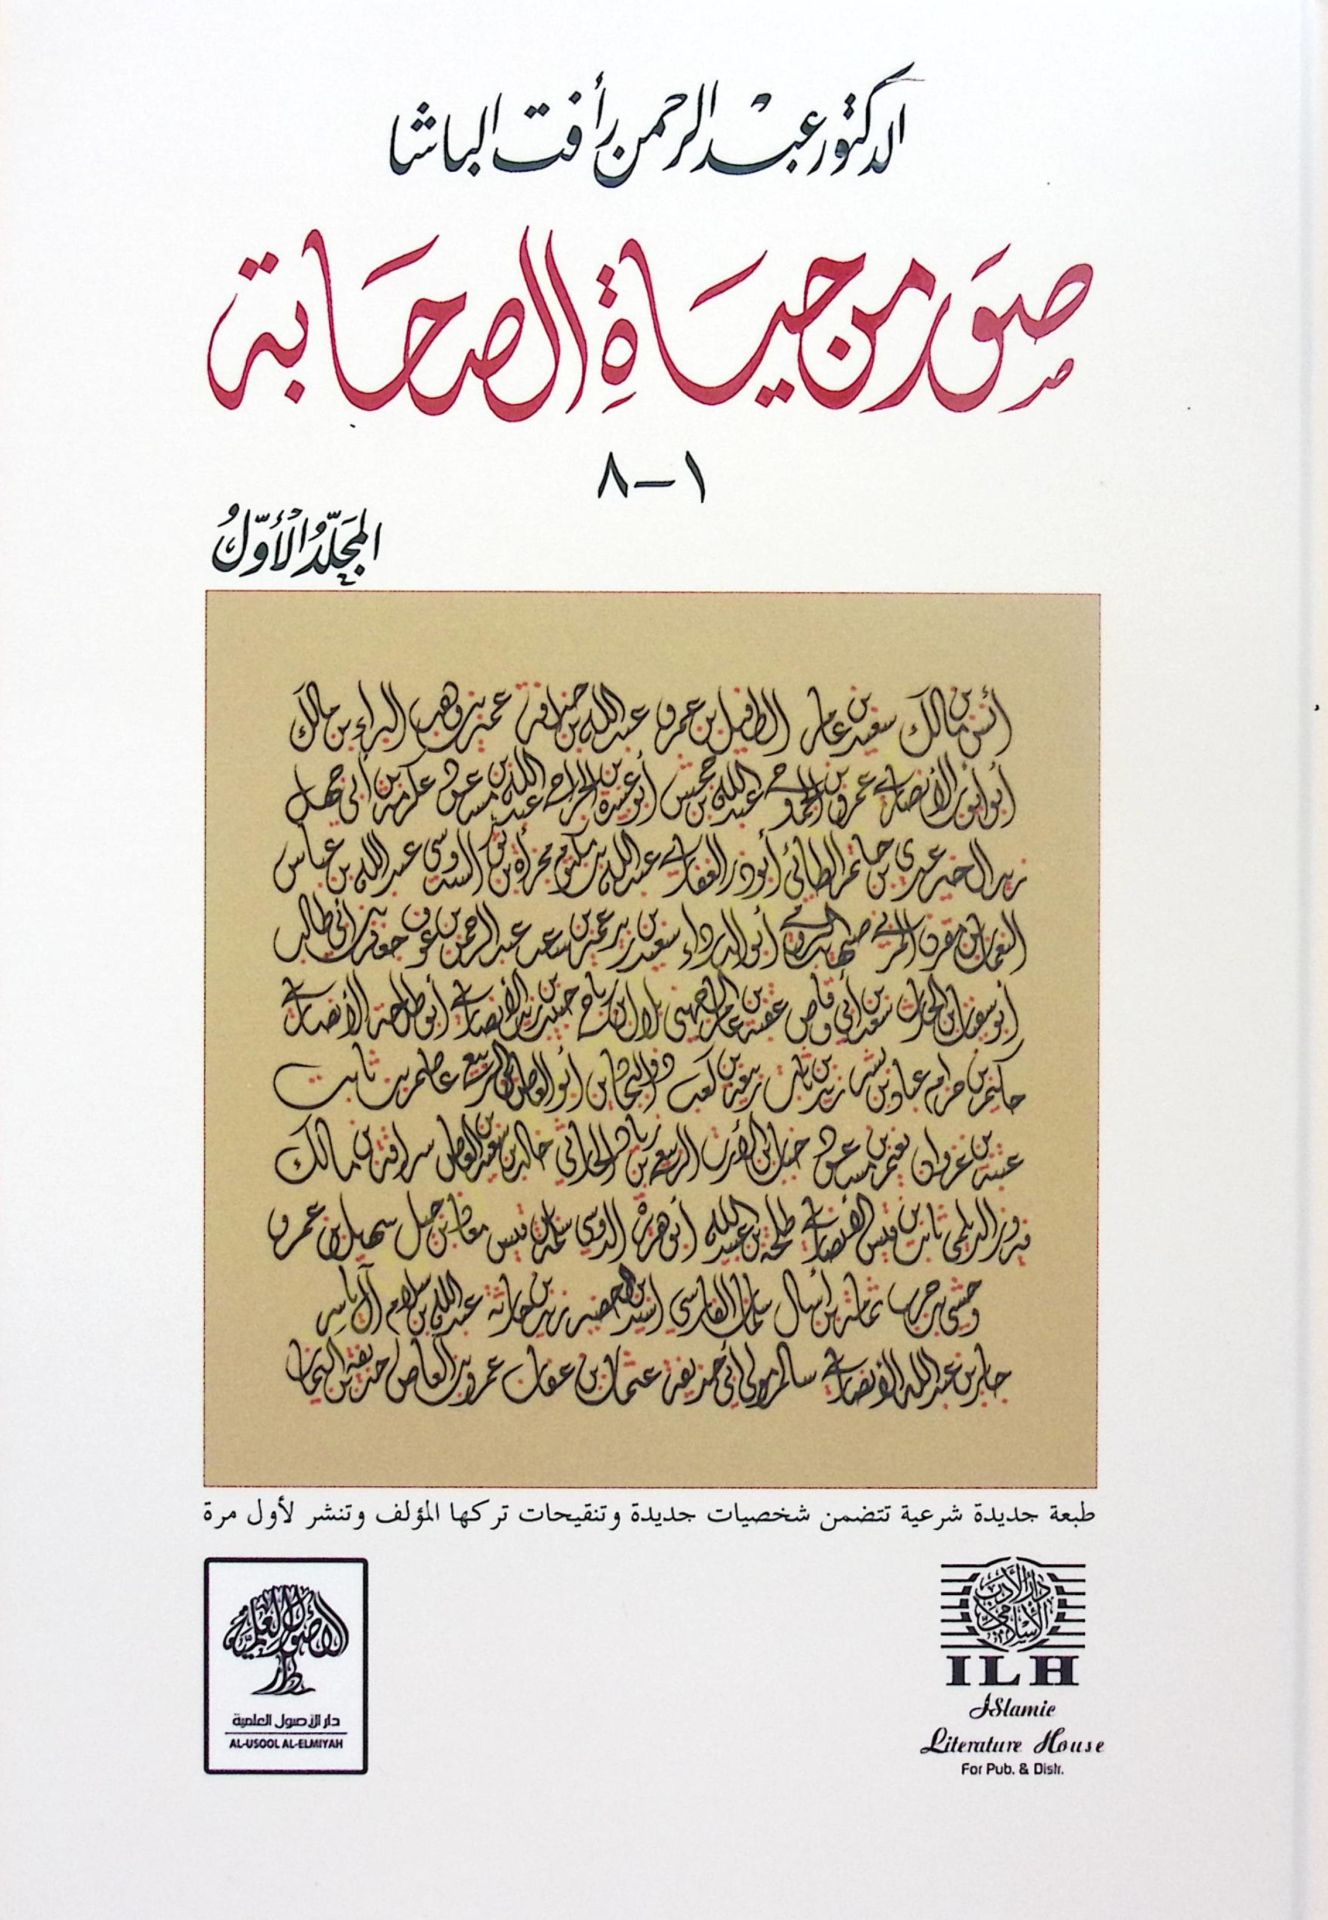 الدكتور عبد الرحمن رأفت الباشا
صور من حياة الصحابة
١-٨
المجلد الأول
أنس بن مالك سعيد بن عامر الطفيل بن عمرو عبد الله بن حذافة عمير بن وهب البراء بن مالك
أبو أيوب الأنصاري عمرو بن الجموح عبد الله بن جحش أبو عبيدة بن الجراح عبد الله بن مسعود عكرمة بن أبي جهل
زيد الخير عدي بن حاتم الطائي أبو ذر الغفاري عبد الله بن مكتوم مجزأة بن ثور السدوسي عبد الله بن عباس
النعمان بن مقرن المزني صهيب الرومي أبو الدرداء سعيد بن زيد عمير بن سعد عبد الرحمن بن عوف جعفر بن أبي طالب
أبو سفيان بن الحارث سعد بن أبي وقاص عقبة بن عامر الجهني بلال بن رباح حبيب بن زيد الأنصاري أبو طلحة الأنصاري
حكيم بن حزام عباد بن بشر زيد بن ثابت ربيعة بن كعب ذو البجادين أبو العاص بن الربيع عاصم بن ثابت
عتبة بن غزوان نعيم بن مسعود خباب بن الأرت الربيع بن زياد الحارثي خالد بن سعيد بن العاص سراقة بن مالك
فيروز الديلمي ثابت بن قيس الأنصاري طلحة بن عبيد الله أبو هريرة الدوسي سلمة بن قيس معاذ بن جبل سهيل بن عمرو
وحشي بن حرب ثمامة بن أثال سلمان الفارسي أسيد بن الحضير زيد بن حارثة عبد الله بن سلام آل ياسر
جابر بن عبد الله الأنصاري سالم مولى أبي حذيفة عثمان بن عفان عمرو بن العاص حذيفة بن اليمان
طبعة جديدة شرعية تتضمن شخصيات جديدة وتنقيحات تركها المؤلف وتنشر لأول مرة
دار الأصول العلمية
دار الأصول العلمية
AL-USOOL AL-ELMIYAH
دار الأدب الإسلامي
ILH
Islamic
Literature House
For Pub. & Distr.